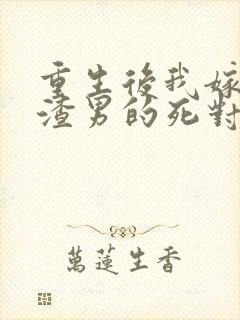 重生後我嫁
渣男的死對
萬蓮生香